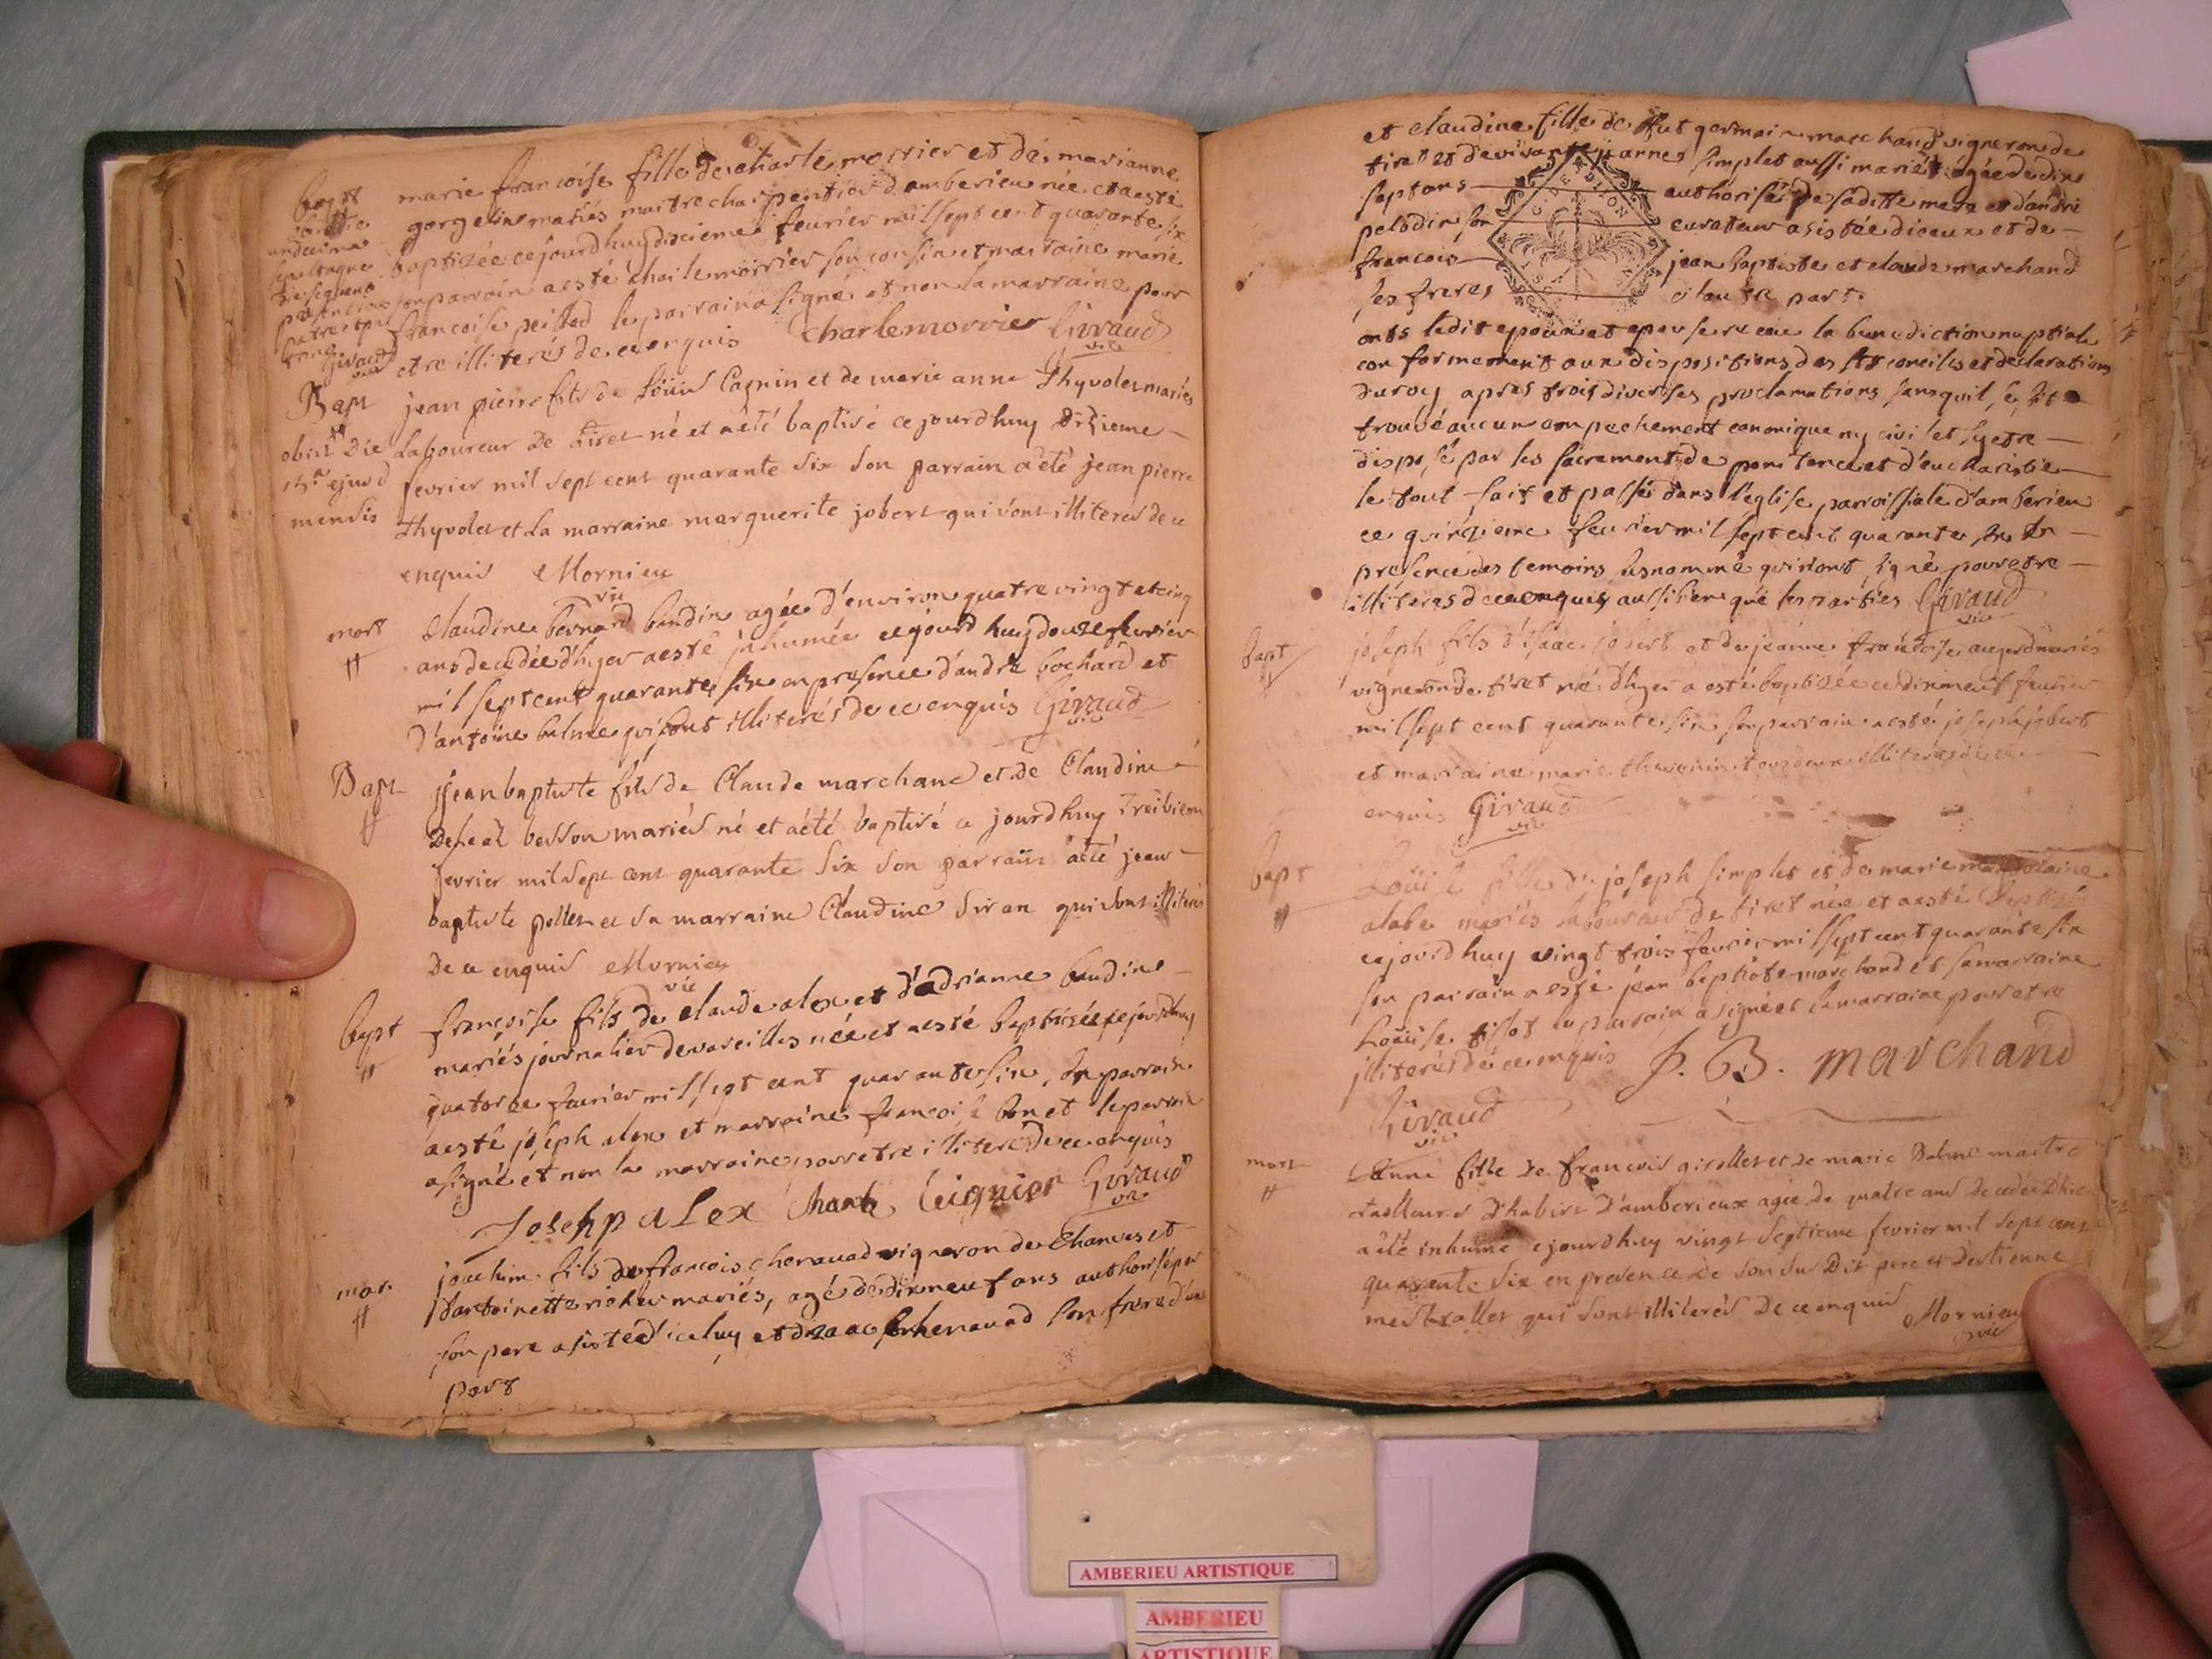 bapt
marie francoise fille de charle morrier et de marianne
gorgeline mariés maitre charpentier d'amberieu née et aesté
baptizée cejourdhuy dixieme feurier mil sept cent quarante six
son parrain aesté charle morrier son cousin et marraine marie
francoise peillod le parrain a signé et non la marraine pour
etre illiterés de ce enquis Charlemorrier Givaud
vic
Bapt
jean pierre fils de Loüis Cagnin et de marie anne Thyvolet mariés
Laboureur De Tiret né et aeté baptisé cejourdhuy Dixieme
fevrier mil sept cent quarante six son parrain aeté jean pierre
Thyvolet et La marraine marguerite jobert qui sont illiterés de ce
enquis Mornieu
vic
obiit die
ejusd
mensis
mort
Claudine bernard baudin agée d'environ quatre vingt et cinq
ans decedée dhyer aesté inhumée cejourdhuy douze feurier
mil sept cent quarante six en presence d'andre bochard et
d'antoine balme qui sont illiterés de ce enquis Givaud
vic
Bapt
jean baptiste fils de Claude marchand et de Claudine
besson mariés né et aété baptisé ce jourdhuy Treisieme
fevrier mil sept cent quarante six son parrain aeté jean
baptiste pollet et sa marraine Claudine Siran qui sont illiterés
De ce enquis Mornieu
vic
bapt
françoise fils de claude alex et d'adrianne baudin
mariés journalier de vareilles née et aesté baptisée cejourdhuy
quatorze feurier mil sept cent quarante six, son parrain
aesté joseph alex et marraine francoise bonet le parrain
a signé et non la marraine pour etre illiterés de ce enquis
Joseph aLex Givaud
vic
mar.
joachim fils de francois chenavad vigneron de Chanves et
d'antoinette richer mariés, agé de dixneuf ans authorisé par
son pere asisté d'iceluy et d'izaac chenavad son frere d'une
part
et claudine fille de fut germain marchand vigneron de
tiret et de vivante jeanne simplet aussi mariés agée de dix
sept ans authorisée de sa ditte mere et d'andré
pelodin son curateur asistée diceux et de
francois jean baptiste et claude marchand
ses freres d'autre part.
onts ledit epoux et epouse receu la benediction nuptiale
conformement aux dispositions des Sts conciles et declarations
du roy apres trois diverses proclamations sans quil se soit
trouvé aucun empechement canonique ny civil et s'y etre
disposé par les sacrements de penitence et d'eucharistie
le tout fait et passé dans l'eglise parroissiale d'amberieu
ce quinzieme feurier mil sept cent quarante six en
presence des temoins susnommé qui n'ont signé pour etre
illiteres de ce enquis aussi bien que les parties Givaud
vic
bapt
joseph fils d'isaac jobert et de jeanne francoise augerd mariés
vigneron de tiret né dhyer a esté baptizée ce dixneuf feurier
mil sept cent quarante six son parrain aesté joseph jobert
et marraine marie thevenin tous deux illiteres de ce
enquis Givaud
vic
bapt
Loüise fille de joseph simplet et de marie
alabe mariés laboureur de tiret née et aesté baptizée
cejourdhuy vingt trois feurier mil sept cent quarante six
son parrain a esté jean baptiste marchand et sa marraine
Loüise tissot le parrain a signé et la marraine pour etre
illiterés de ce enquis J. B. marchand
Givaud
vic
mort
Anne fille de francois girollet et de marie Balme maitre
tailleurs D'habits D'amberieux agée de quatre ans decedée Dhier
aété inhumé cejourdhuy vingt septieme fevrier mil sept cent
quarente six en presence de son su Dit pere et D'estienne
mestrallet qui sont illiterés De ce enquis Mornieu
vic
AMBERIEU ARTISTIQUE
AMBERIEU
ARTISTIQUE